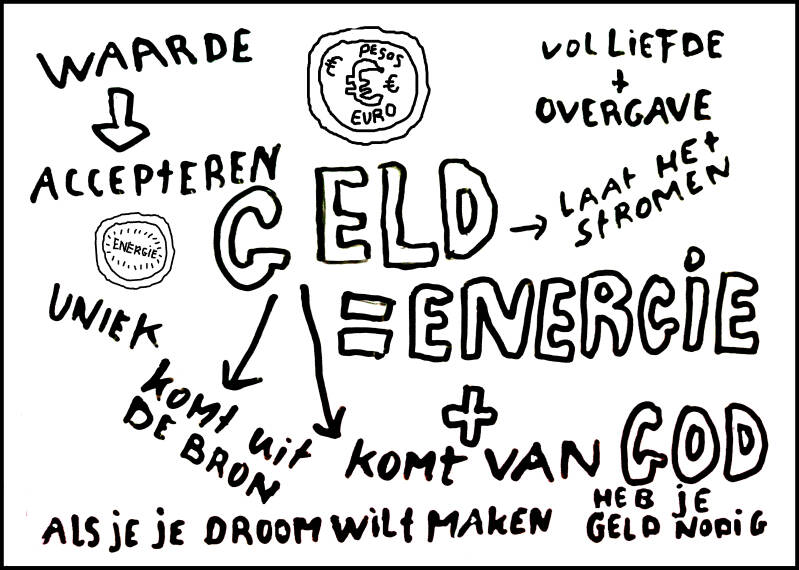 WAARDE
PESOS
€ € €
EURO
VOL LiEFDE
+
OVERGAVE
ACCEPtEREN
GELD
LAAt HEt
StROMEN
ENERGIE
= ENERGiE
UNiEK
KOMt Uit
DE BRON
+
KOMt VAN GOD
ALS jE jE DROOM WiLt MAKEN
HEB jE
GELD NODiG